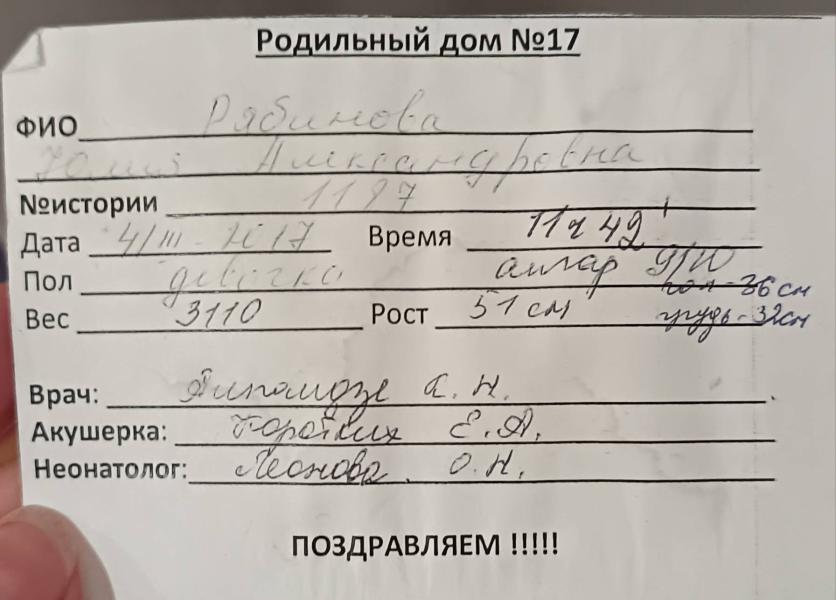 Родильный дом №17
ФИО Рябинова
Юлия Александровна
№истории 1197
Дата 4/III-2017 Время 11ч 42'
Пол девочка апгар 9/10
гол - 36 см
Вес 3110 Рост 51 см грудь - 32см
Врач: А. Н.
Акушерка: Коротких Е.А.
Неонатолог: Леонова О.Н.
ПОЗДРАВЛЯЕМ !!!!!